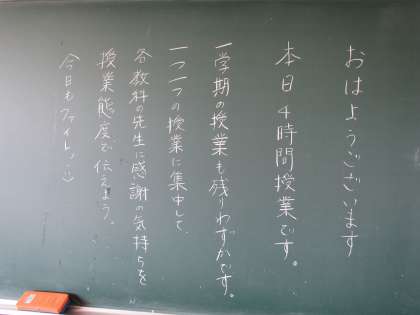 おはようございます
本日4時間授業です。
一学期の授業も残りわずかです。
一つ一つの授業に集中して、
各教科の先生に感謝の気持ちを
授業態度で伝えよう。
今日もファイト!:)